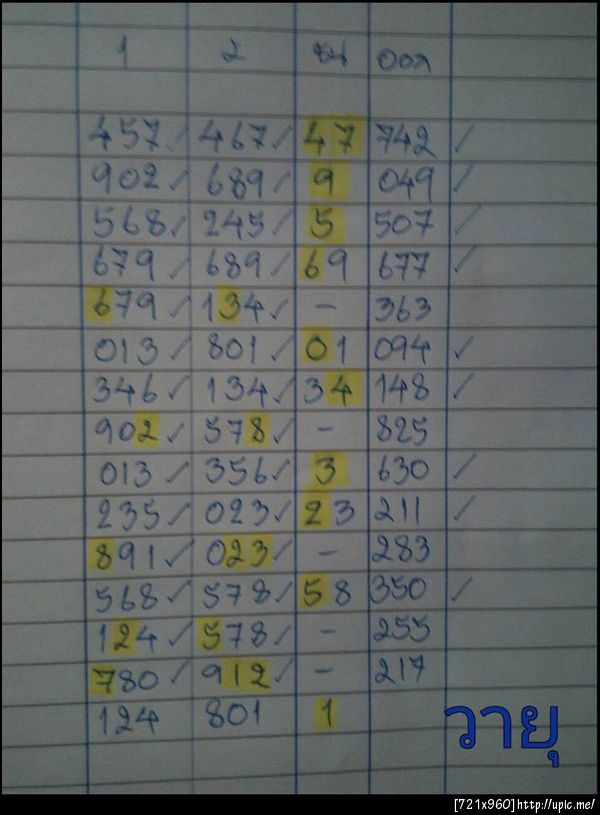 1 2 ชน ออก
457✓ 467✓ 47 742 ✓
902✓ 689✓ 9 049 ✓
568✓ 245✓ 5 507 ✓
679✓ 689✓ 69 677 ✓
679✓ 134✓ - 363
013✓ 801✓ 01 094 ✓
346✓ 134✓ 34 148 ✓
902✓ 578✓ - 825
013✓ 356✓ 3 630 ✓
235✓ 023✓ 23 211 ✓
891✓ 023✓ - 283
568✓ 578✓ 58 350 ✓
124✓ 578✓ - 255
780✓ 912✓ - 217
124 801 1
วายุ
[721x960]http://upic.me/